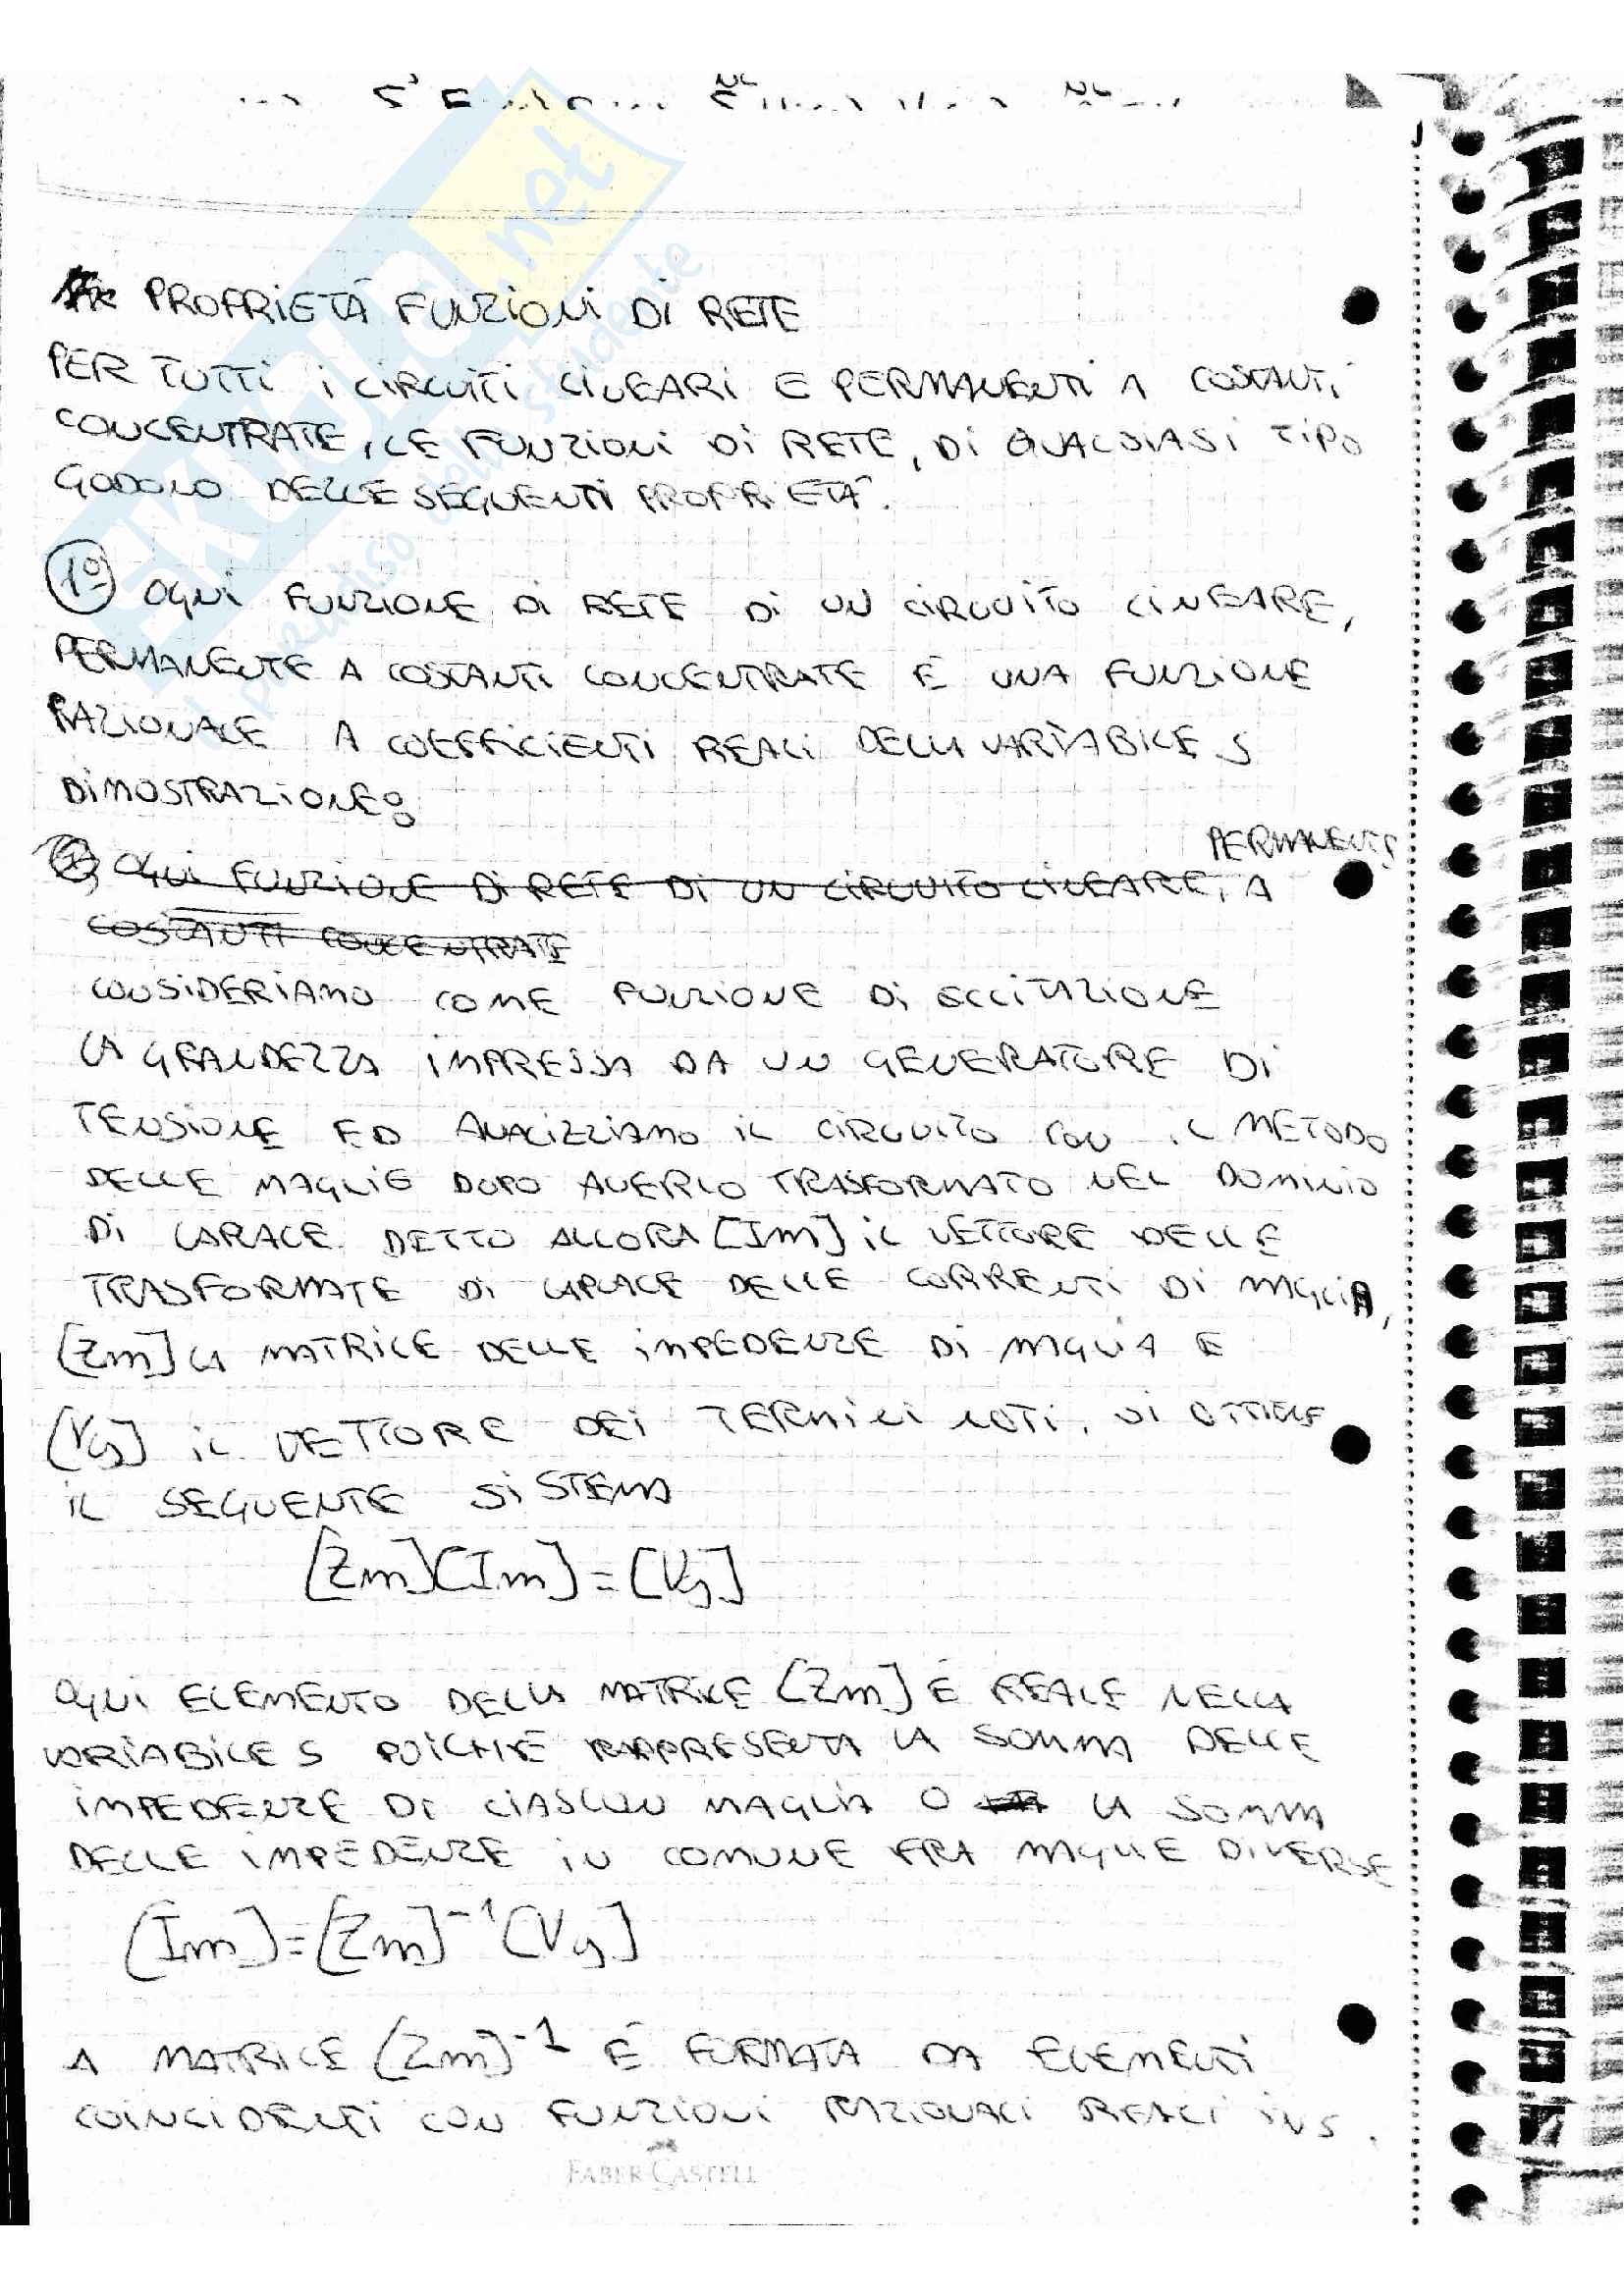 PROPRIETÀ FUNZIONI DI RETE
PER TUTTI I CIRCUITI LINEARI E PERMANENTI A COSTANTI
CONCENTRATE, LE FUNZIONI DI RETE, DI QUALSIASI TIPO
GODONO DELLE SEGUENTI PROPRIETÀ.
1° OGNI FUNZIONE DI RETE DI UN CIRCUITO LINEARE,
PERMANENTE A COSTANTI CONCENTRATE È UNA FUNZIONE
RAZIONALE A COEFFICIENTI REALI DELLA VARIABILE S
DIMOSTRAZIONE:
PERMANENTE
OGNI FUNZIONE DI RETE DI UN CIRCUITO LINEARE, A
COSTANTI CONCENTRATE
CONSIDERIAMO COME FUNZIONE DI ECCITAZIONE
LA GRANDEZZA IMPRESSA DA UN GENERATORE DI
TENSIONE ED ANALIZZIAMO IL CIRCUITO CON IL METODO
DELLE MAGLIE DOPO AVERLO TRASFORMATO NEL DOMINIO
DI LAPLACE. DETTO ALLORA [Im] IL VETTORE DELLE
TRASFORMATE DI LAPLACE DELLE CORRENTI DI MAGLIA,
[Zm] LA MATRICE DELLE IMPEDENZE DI MAGLIA E
[Vg] IL VETTORE DEI TERMINI NOTI, SI OTTIENE
IL SEGUENTE SISTEMA
[Zm][Im]=[Vg]
OGNI ELEMENTO DELLA MATRICE [Zm] È REALE NELLA
VARIABILE S POICHÈ RAPPRESENTA LA SOMMA DELLE
IMPEDENZE DI CIASCUN MAGLIA O LA SOMMA
DELLE IMPEDENZE IN COMUNE FRA MAGLIE DIVERSE
[Im]=[Zm]⁻¹[Vg]
A MATRICE [Zm]⁻¹ È FORMATA DA ELEMENTI
COINCIDENTI CON FUNZIONI RAZIONALI REALI IN S.
FABER-CASTELL
SKUOLA.net
il paradiso dello studente